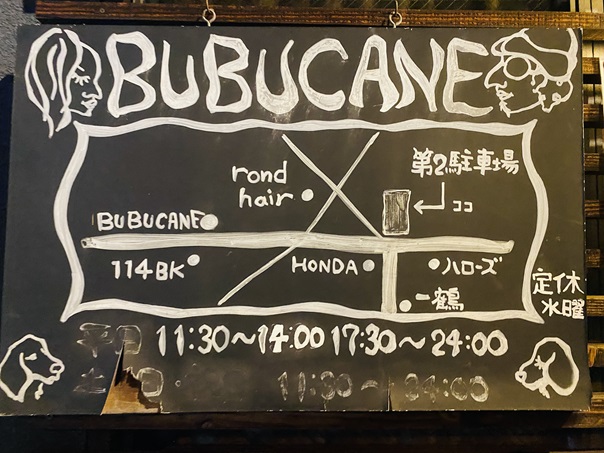 BUBUCANE
第2駐車場
rond
hair
ココ
BUBUCANE
114BK
HONDA
ハローズ
一鶴
定休
水曜
平日 11:30〜14:00 17:30〜24:00
土 日 11:30〜24:00